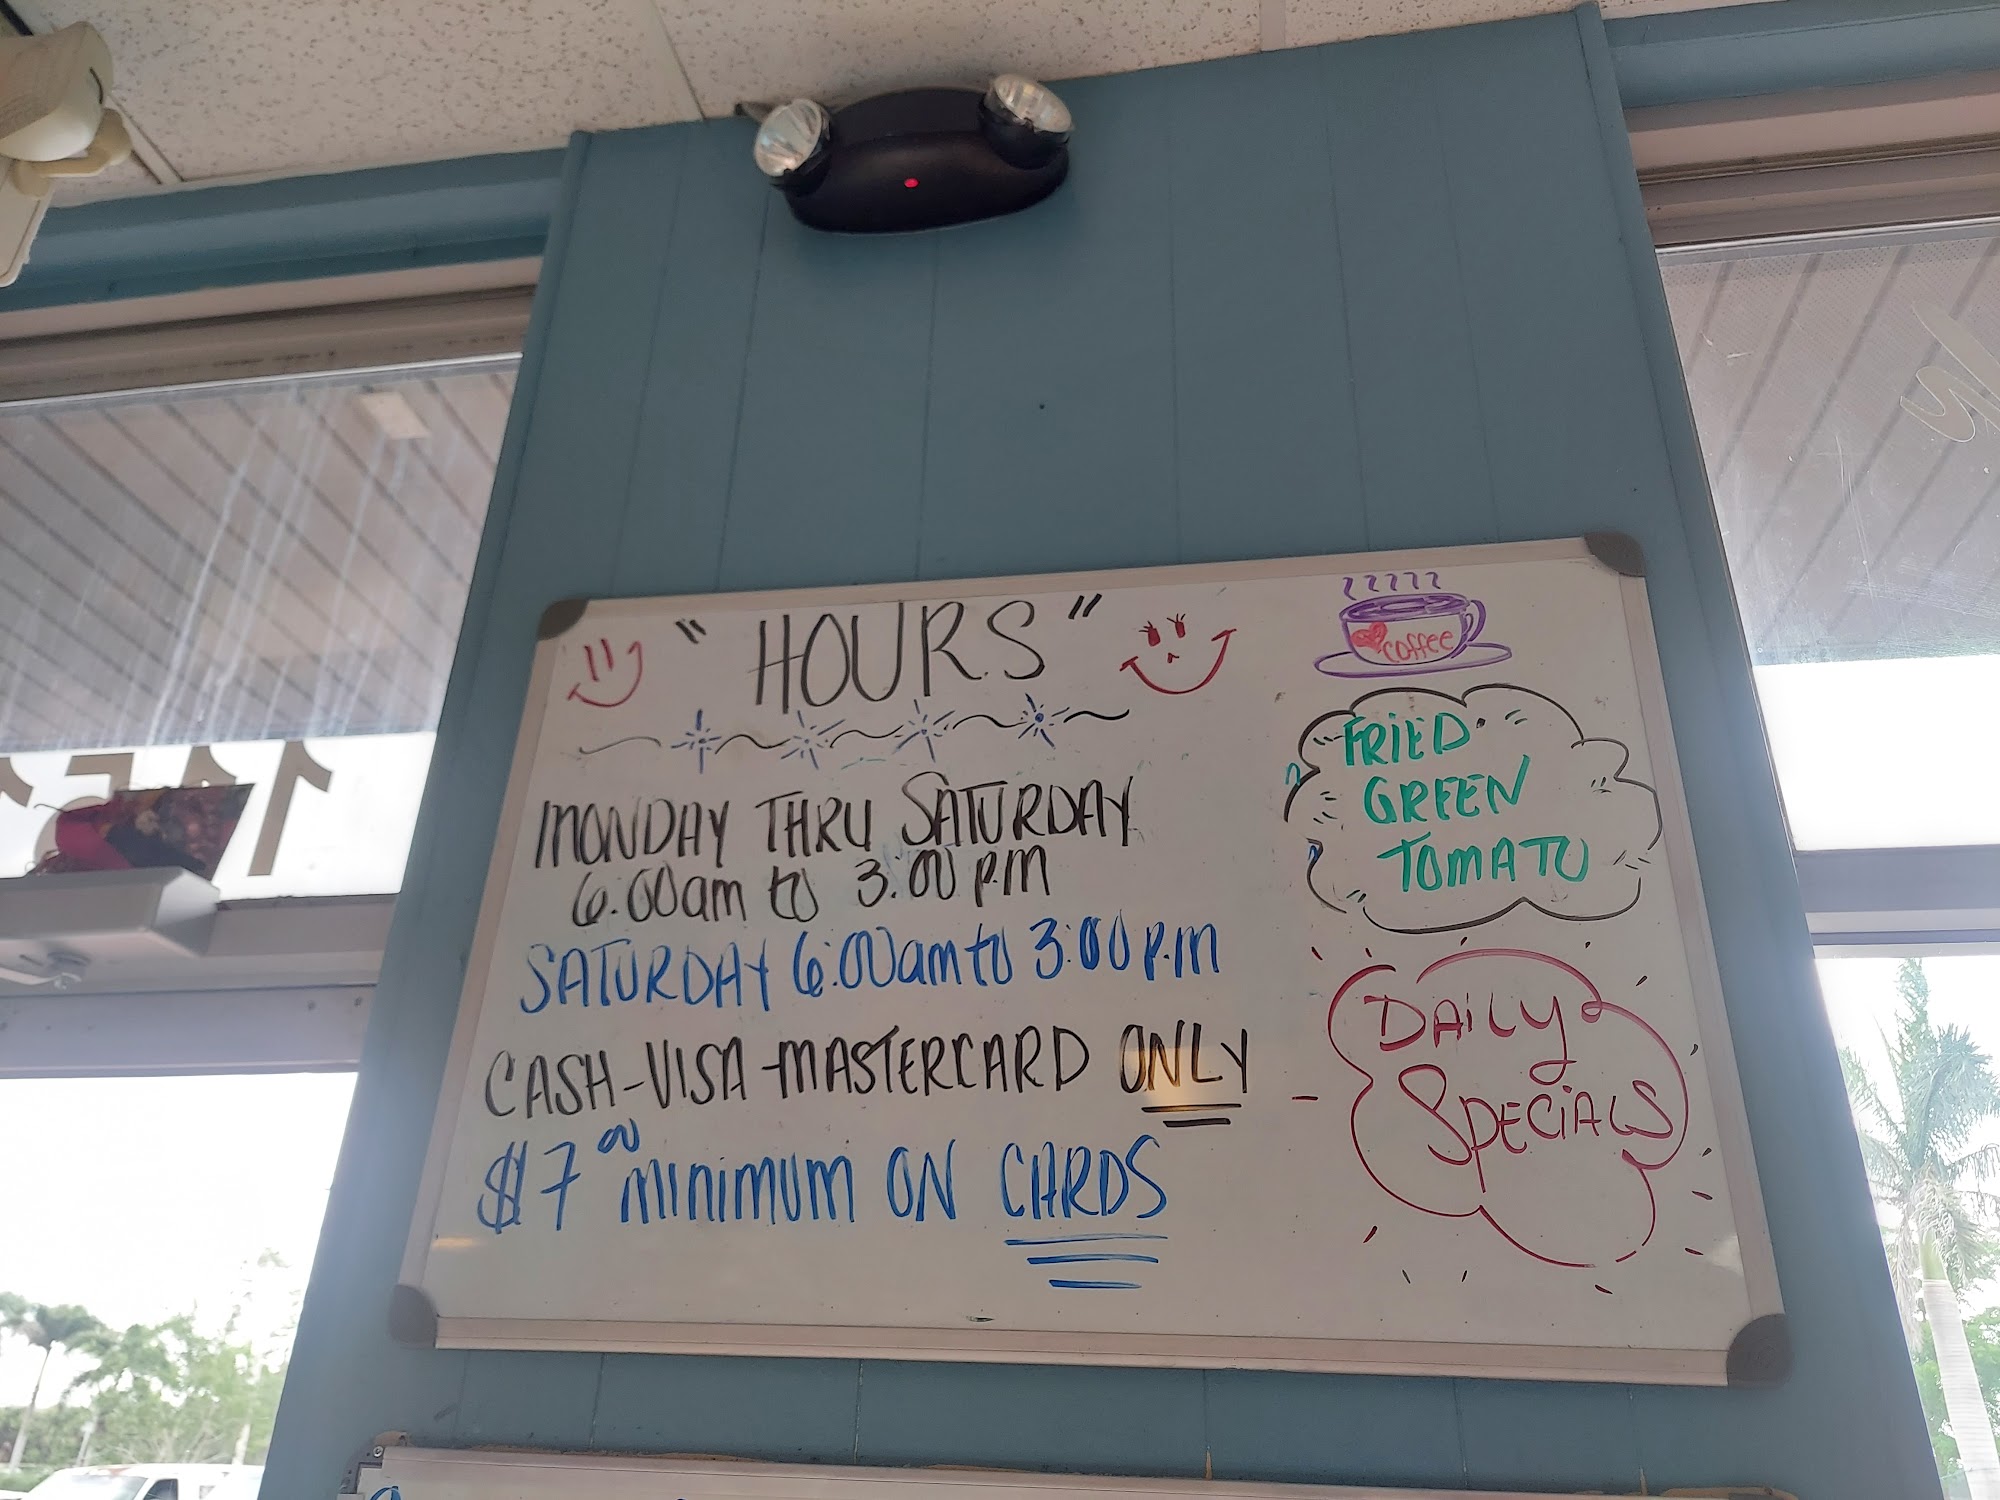 "HOURS"
MONDAY THRU SATURDAY
6:00am to 3:00 P.M
SATURDAY 6:00am to 3:00 P.M
CASH-VISA-MASTERCARD ONLY
$7.00 MINIMUM ON CARDS
COFFEE
FRIED
GREEN
TOMATO
DAILY
SPECIALS